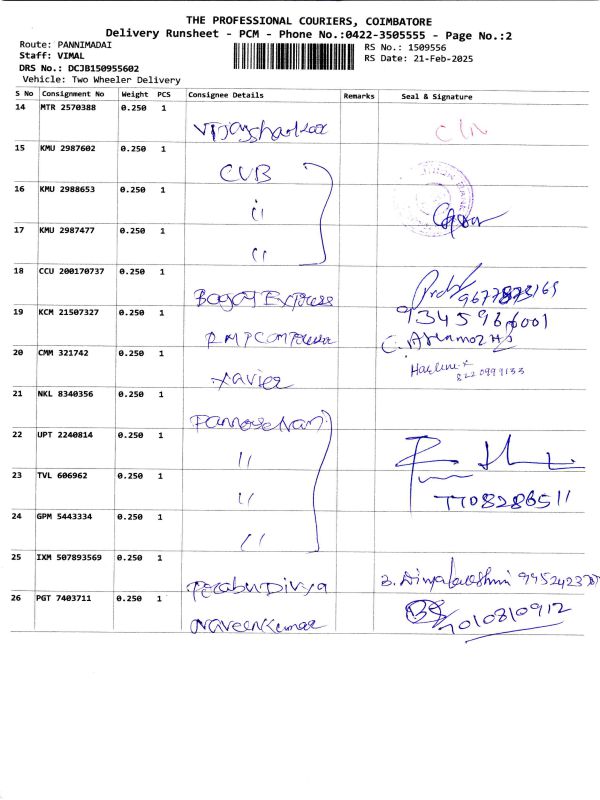 THE PROFESSIONAL COURIERS, COIMBATORE
Delivery Runsheet - PCM - Phone No.:0422-3505555 - Page No.:2
Route: PANNIMADAI
RS No.: 1509556
Staff: VIMAL
RS Date: 21-Feb-2025
DRS No.: DCJB150955602
Vehicle: Two Wheeler Delivery
S No Consignment No Weight PCS Consignee Details Remarks Seal & Signature
14 MTR 2570388 0.250 1
15 KMU 2987602 0.250 1 CUB
16 KMU 2988653 0.250 1 "
17 KMU 2987477 0.250 1 "
18 CCU 200170737 0.250 1
19 KCM 21507327 0.250 1
20 CMM 321742 0.250 1 xavier
8220999133
21 NKL 8340356 0.250 1
22 UPT 2240814 0.250 1 "
23 TVL 606962 0.250 1 "
7708286511
24 GPM 5443334 0.250 1 "
25 IXM 507893569 0.250 1 PrabuDivya
26 PGT 7403711 0.250 1 NaveenKumar
7010810912